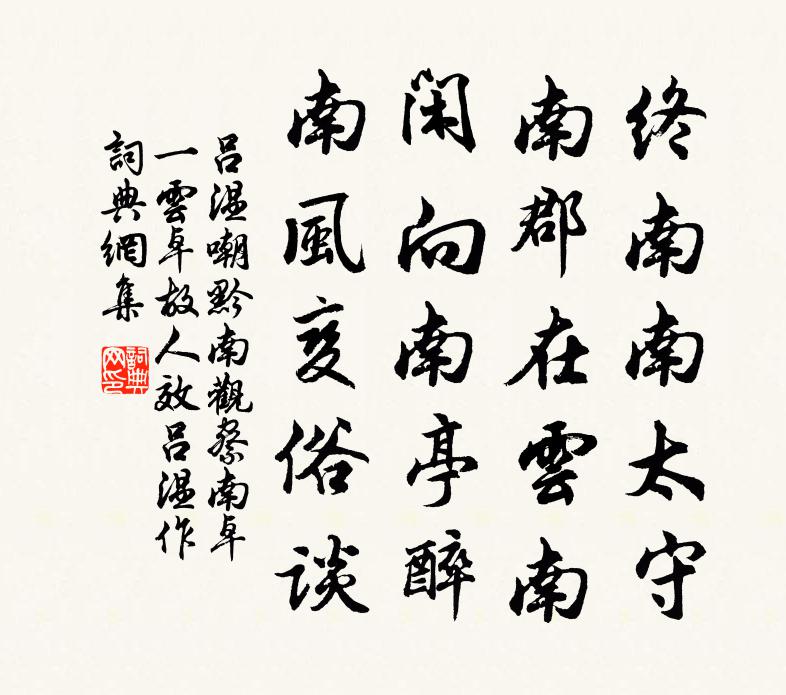 终南南太守
南郡在雲南
闲向南亭醉
南風变俗谈
吕温嘲黔南觀察南卓
一雲卓故人效吕温作
詞典網集
詞典网印